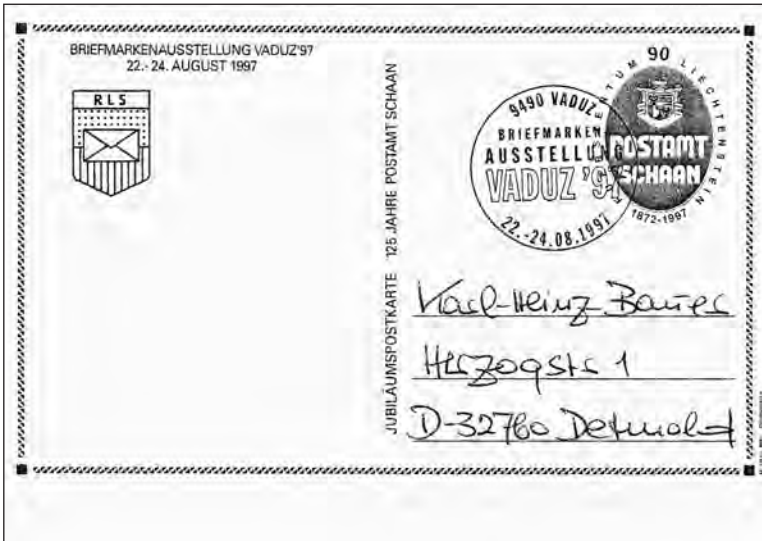 BRIEFMARKENAUSSTELLUNG VADUZ'97
22.- 24. AUGUST 1997
RLS
JUBILÄUMSPOSTKARTE 125 JAHRE POSTAMT SCHAAN
9490 VADUZ
BRIEFMARKEN
AUSSTELLUNG
VADUZ '97
22.-24.08.1997
90
FÜRSTENTUM LIECHTENSTEIN
POSTAMT
SCHAAN
1872-1997
Karl-Heinz Bauer
Herzogstr 1
D-32760 Detmold